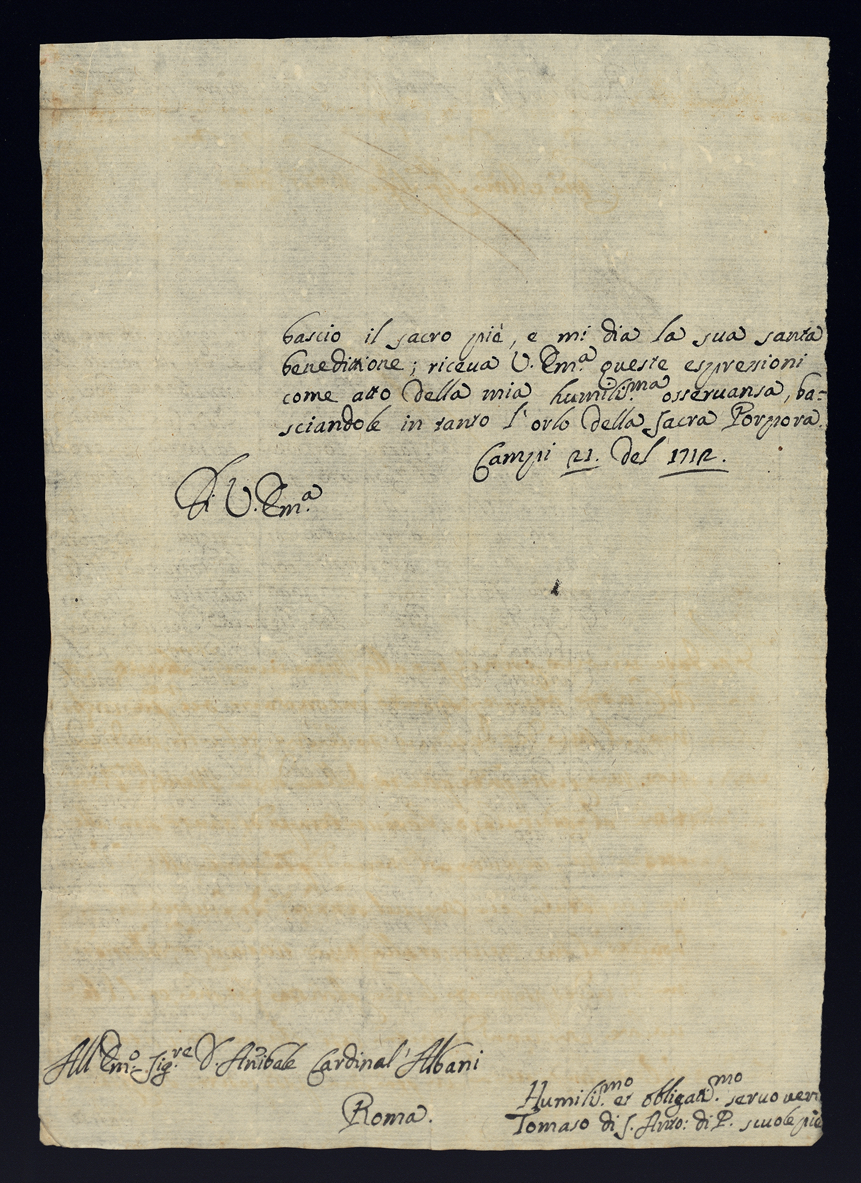 bascio il sacro piè, e mi dia la sua santa
benedittione; riceva V. Em.ᵃ queste espressioni
come atto della mia humilis.ᵐᵃ osservansa, ba=
sciandole in tanto l'orlo della sacra Porpora.
Campi 21. del 1712.
Di V. Em.ᵃ
All'Em.ᵒ Sig.ʳᵉ D. Anibale Cardinal' Albani
Roma.
Humilis.ᵐᵒ et obligatis.ᵐᵒ servo vero
Tomaso di S. Anto: di P. scuole pie